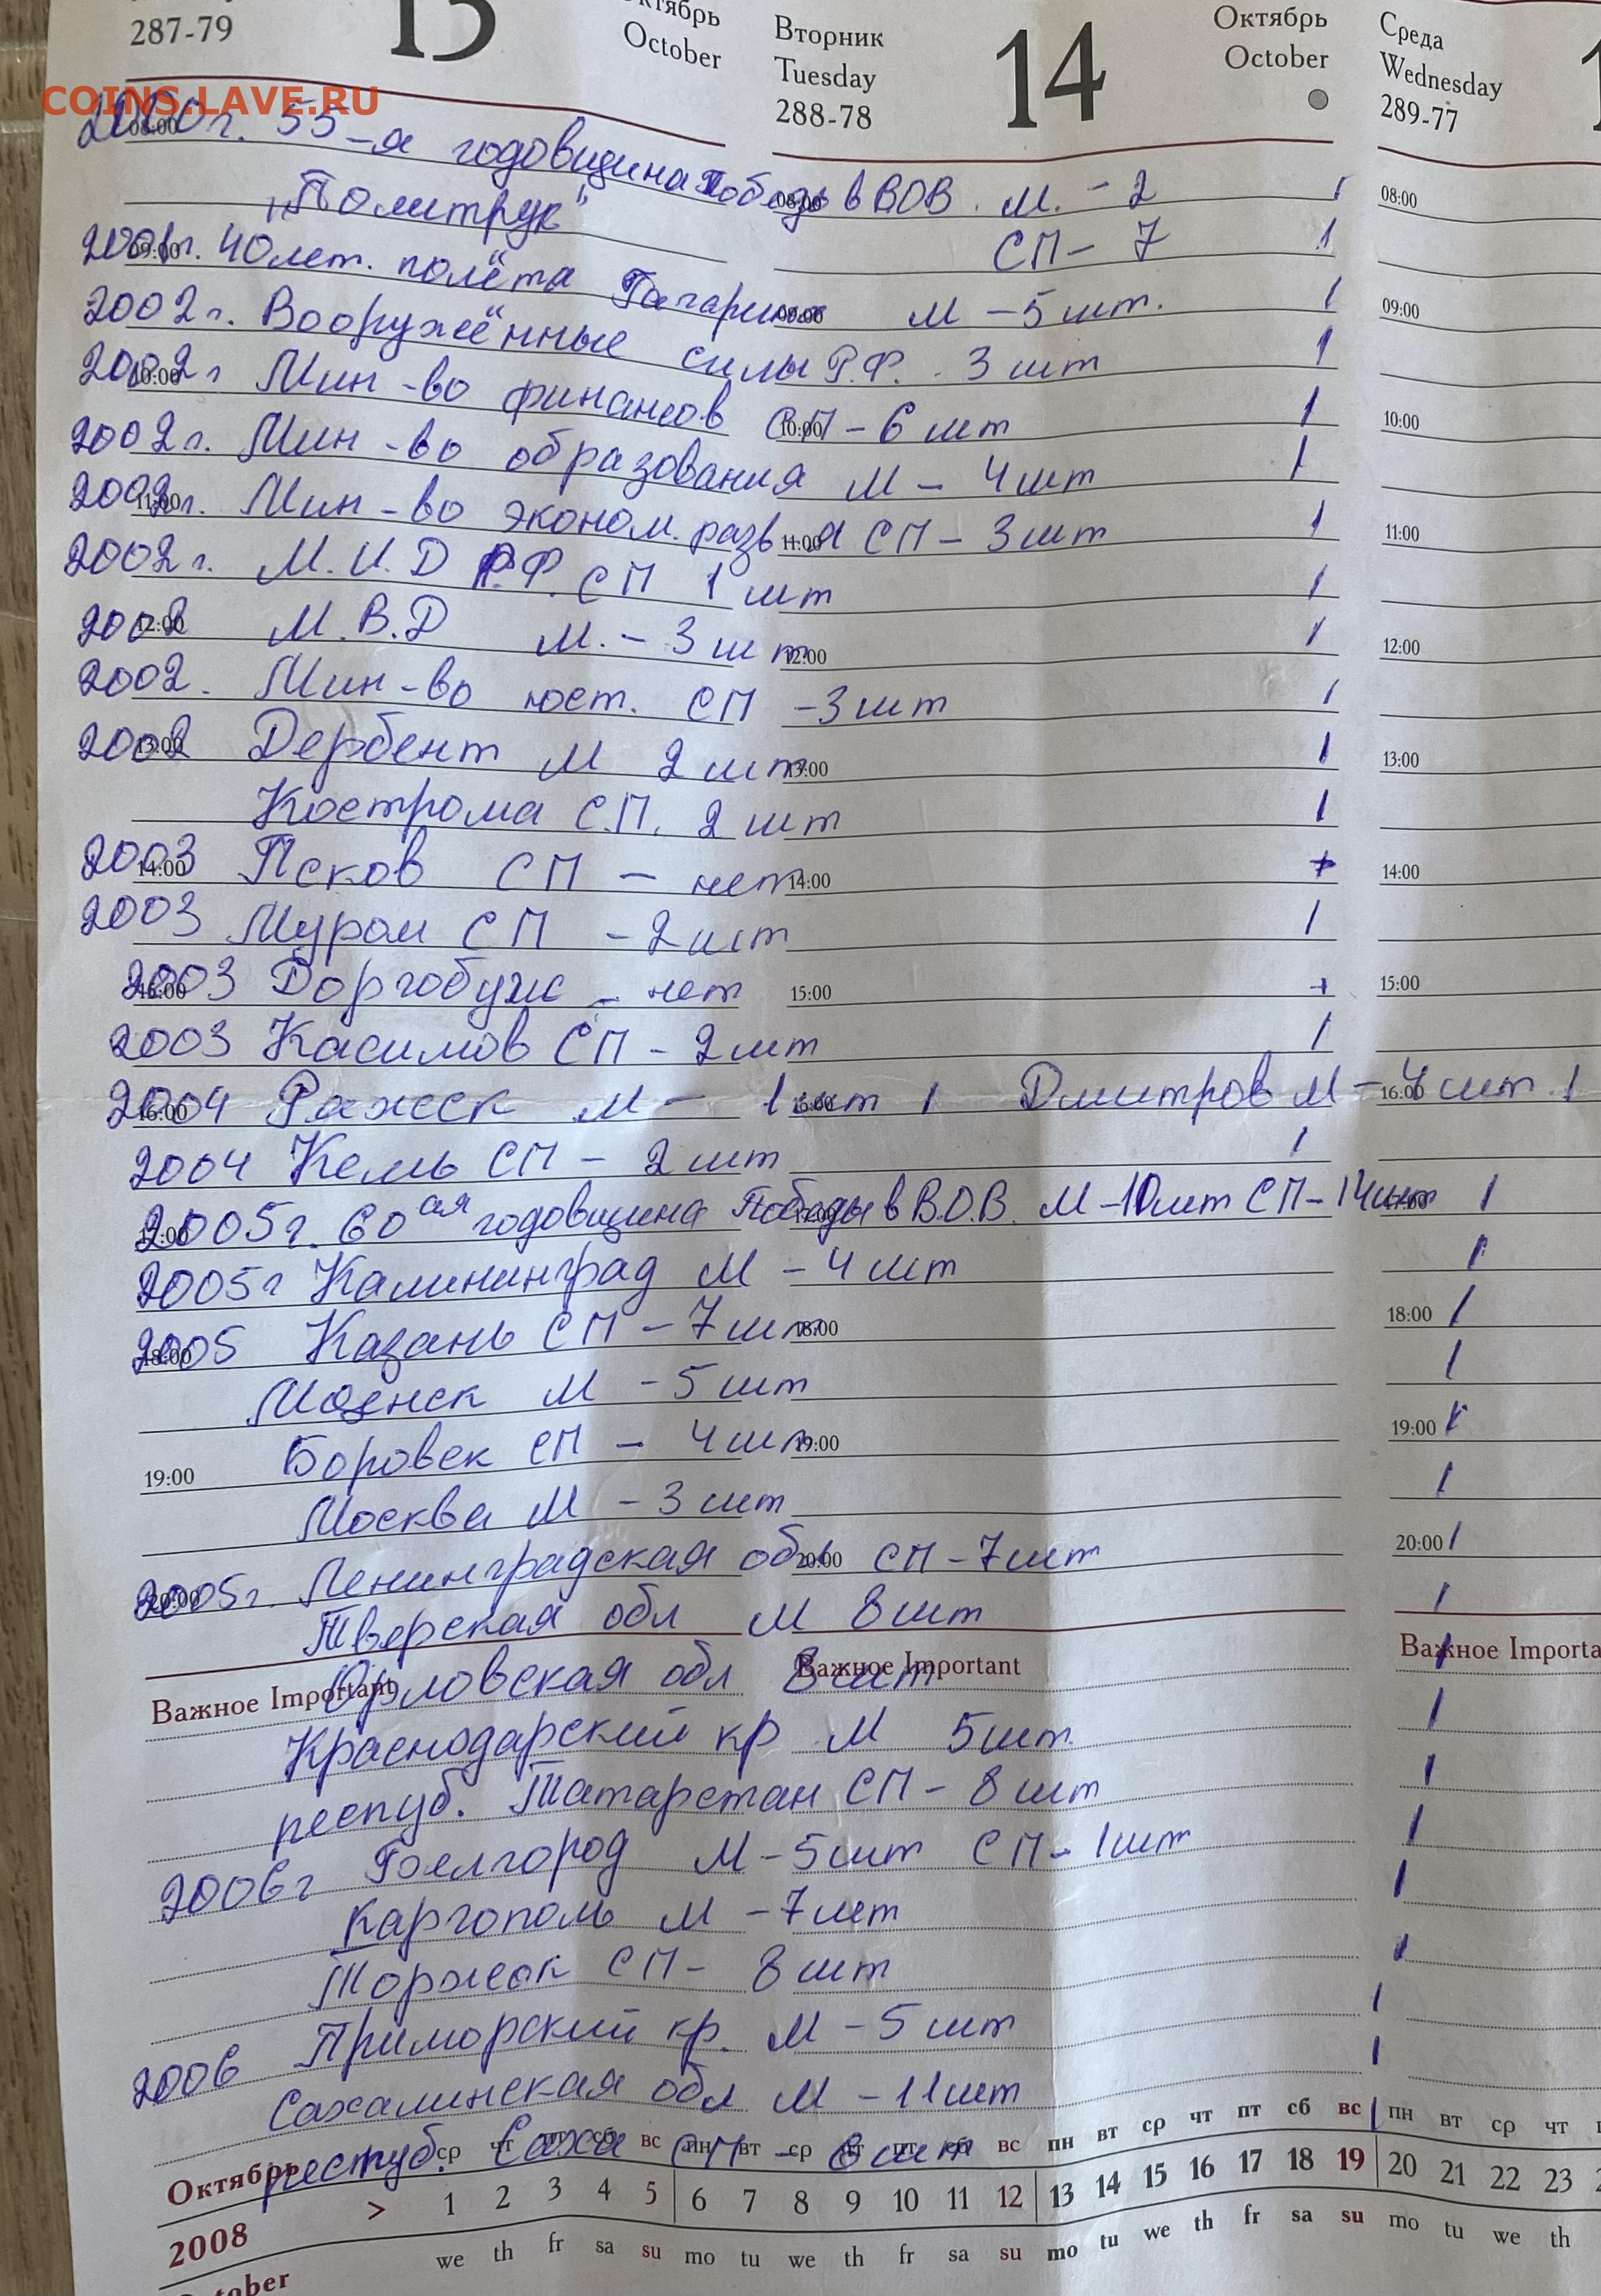 287-79
13
October
Вторник
Tuesday
288-78
14
Октябрь
October
Среда
Wednesday
289-77
COINS.LAVE.RU
2000г. 55-я годовщина Победы в ВОВ. М. - 2 1
"Политрук" СП - 7 1
2001г. 40 лет. полёта Гагарина М - 5 шт. 1
2002г. Вооружённые силы Р.Ф. . 3 шт 1
2002г Мин-во финансов СП - 6 шт 1
2002г. Мин-во образования М - 4 шт 1
2002г. Мин-во эконом. разв-я СП - 3 шт 1
2002г. М.И.Д Р.Ф. СП 1 шт 1
2002 М.В.Д М. - 3 шт 1
2002. Мин-во юст. СП - 3 шт 1
2002 Дербент М 2 шт 1
Кострома С.П. 2 шт 1
2003 Псков СП - нет +
2003 Муром СП - 2 шт 1
2003 Доргобуж - нет +
2003 Касимов СП - 2 шт 1
2004 Ряжск М - 1 шт 1 Дмитров М - 4 шт 1
2004 Кемь СП - 2 шт 1
2005г. 60ая годовщина Победы в В.О.В. М - 10 шт СП - 14 шт 1
2005г Калининград М - 4 шт 1
2005 Казань СП - 7 шт 1
Моценск М - 5 шт 1
Боровск СП - 4 шт 1
Москва М - 3 шт 1
2005г. Ленинградская обл СП - 7 шт 1
Тверская обл М 8 шт 1
Орловская обл 8 шт 1
Краснодарский кр М 5 шт. 1
респуб. Татарстан СП - 8 шт 1
2006г Белгород М - 5 шт СП - 1 шт 1
Каргополь М - 7 шт 1
Торжок СП - 8 шт 1
2006 Приморский кр. М - 5 шт 1
Сахалинская обл М - 11 шт 1
респуб. Саха СП - 8 шт 1
08:00 08:00 08:00
09:00 09:00 09:00
10:00 10:00 10:00
11:00 11:00 11:00
12:00 12:00 12:00
13:00 13:00 13:00
14:00 14:00 14:00
15:00 15:00 15:00
16:00 16:00 16:00
17:00 17:00 17:00
18:00 18:00 18:00
19:00 19:00 19:00
20:00 20:00 20:00
Важное Important Важное Important Важное Importa
Октябрь ср чт пт сб вс пн вт ср чт пт сб вс пн вт ср чт пт сб вс пн вт ср чт
2008 > 1 2 3 4 5 6 7 8 9 10 11 12 13 14 15 16 17 18 19 20 21 22 23
tober we th fr sa su mo tu we th fr sa su mo tu we th fr sa su mo tu we th